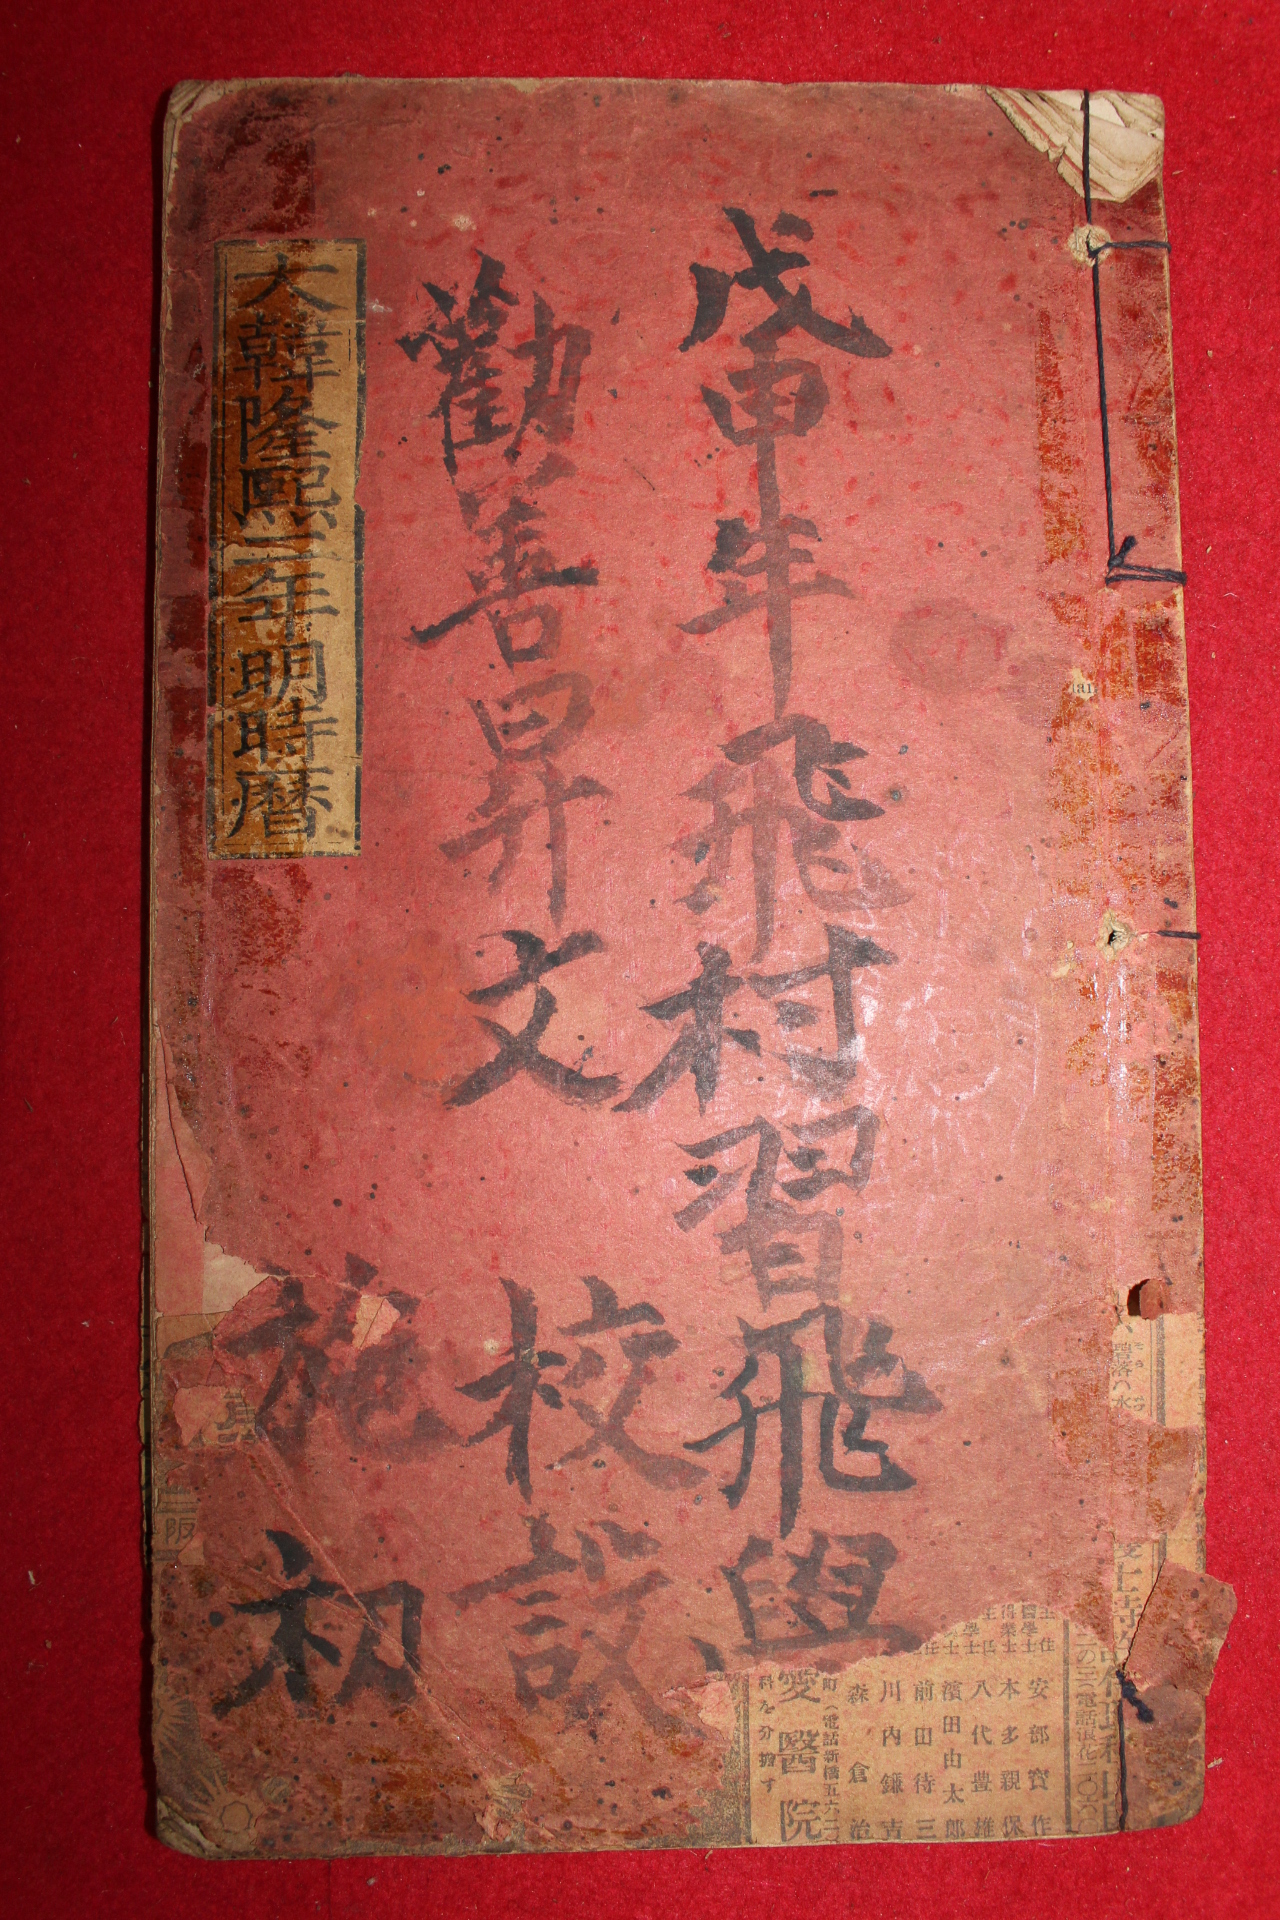 戊申年飛村習飛學
校設
勸善昇文
施
初
大韓隆熙二年明時曆
安部寶作
本多親保
八代豊雄
濱田由太郎
前田待三
川內鎌吉
森倉治
愛醫院
科を分擔す
阪